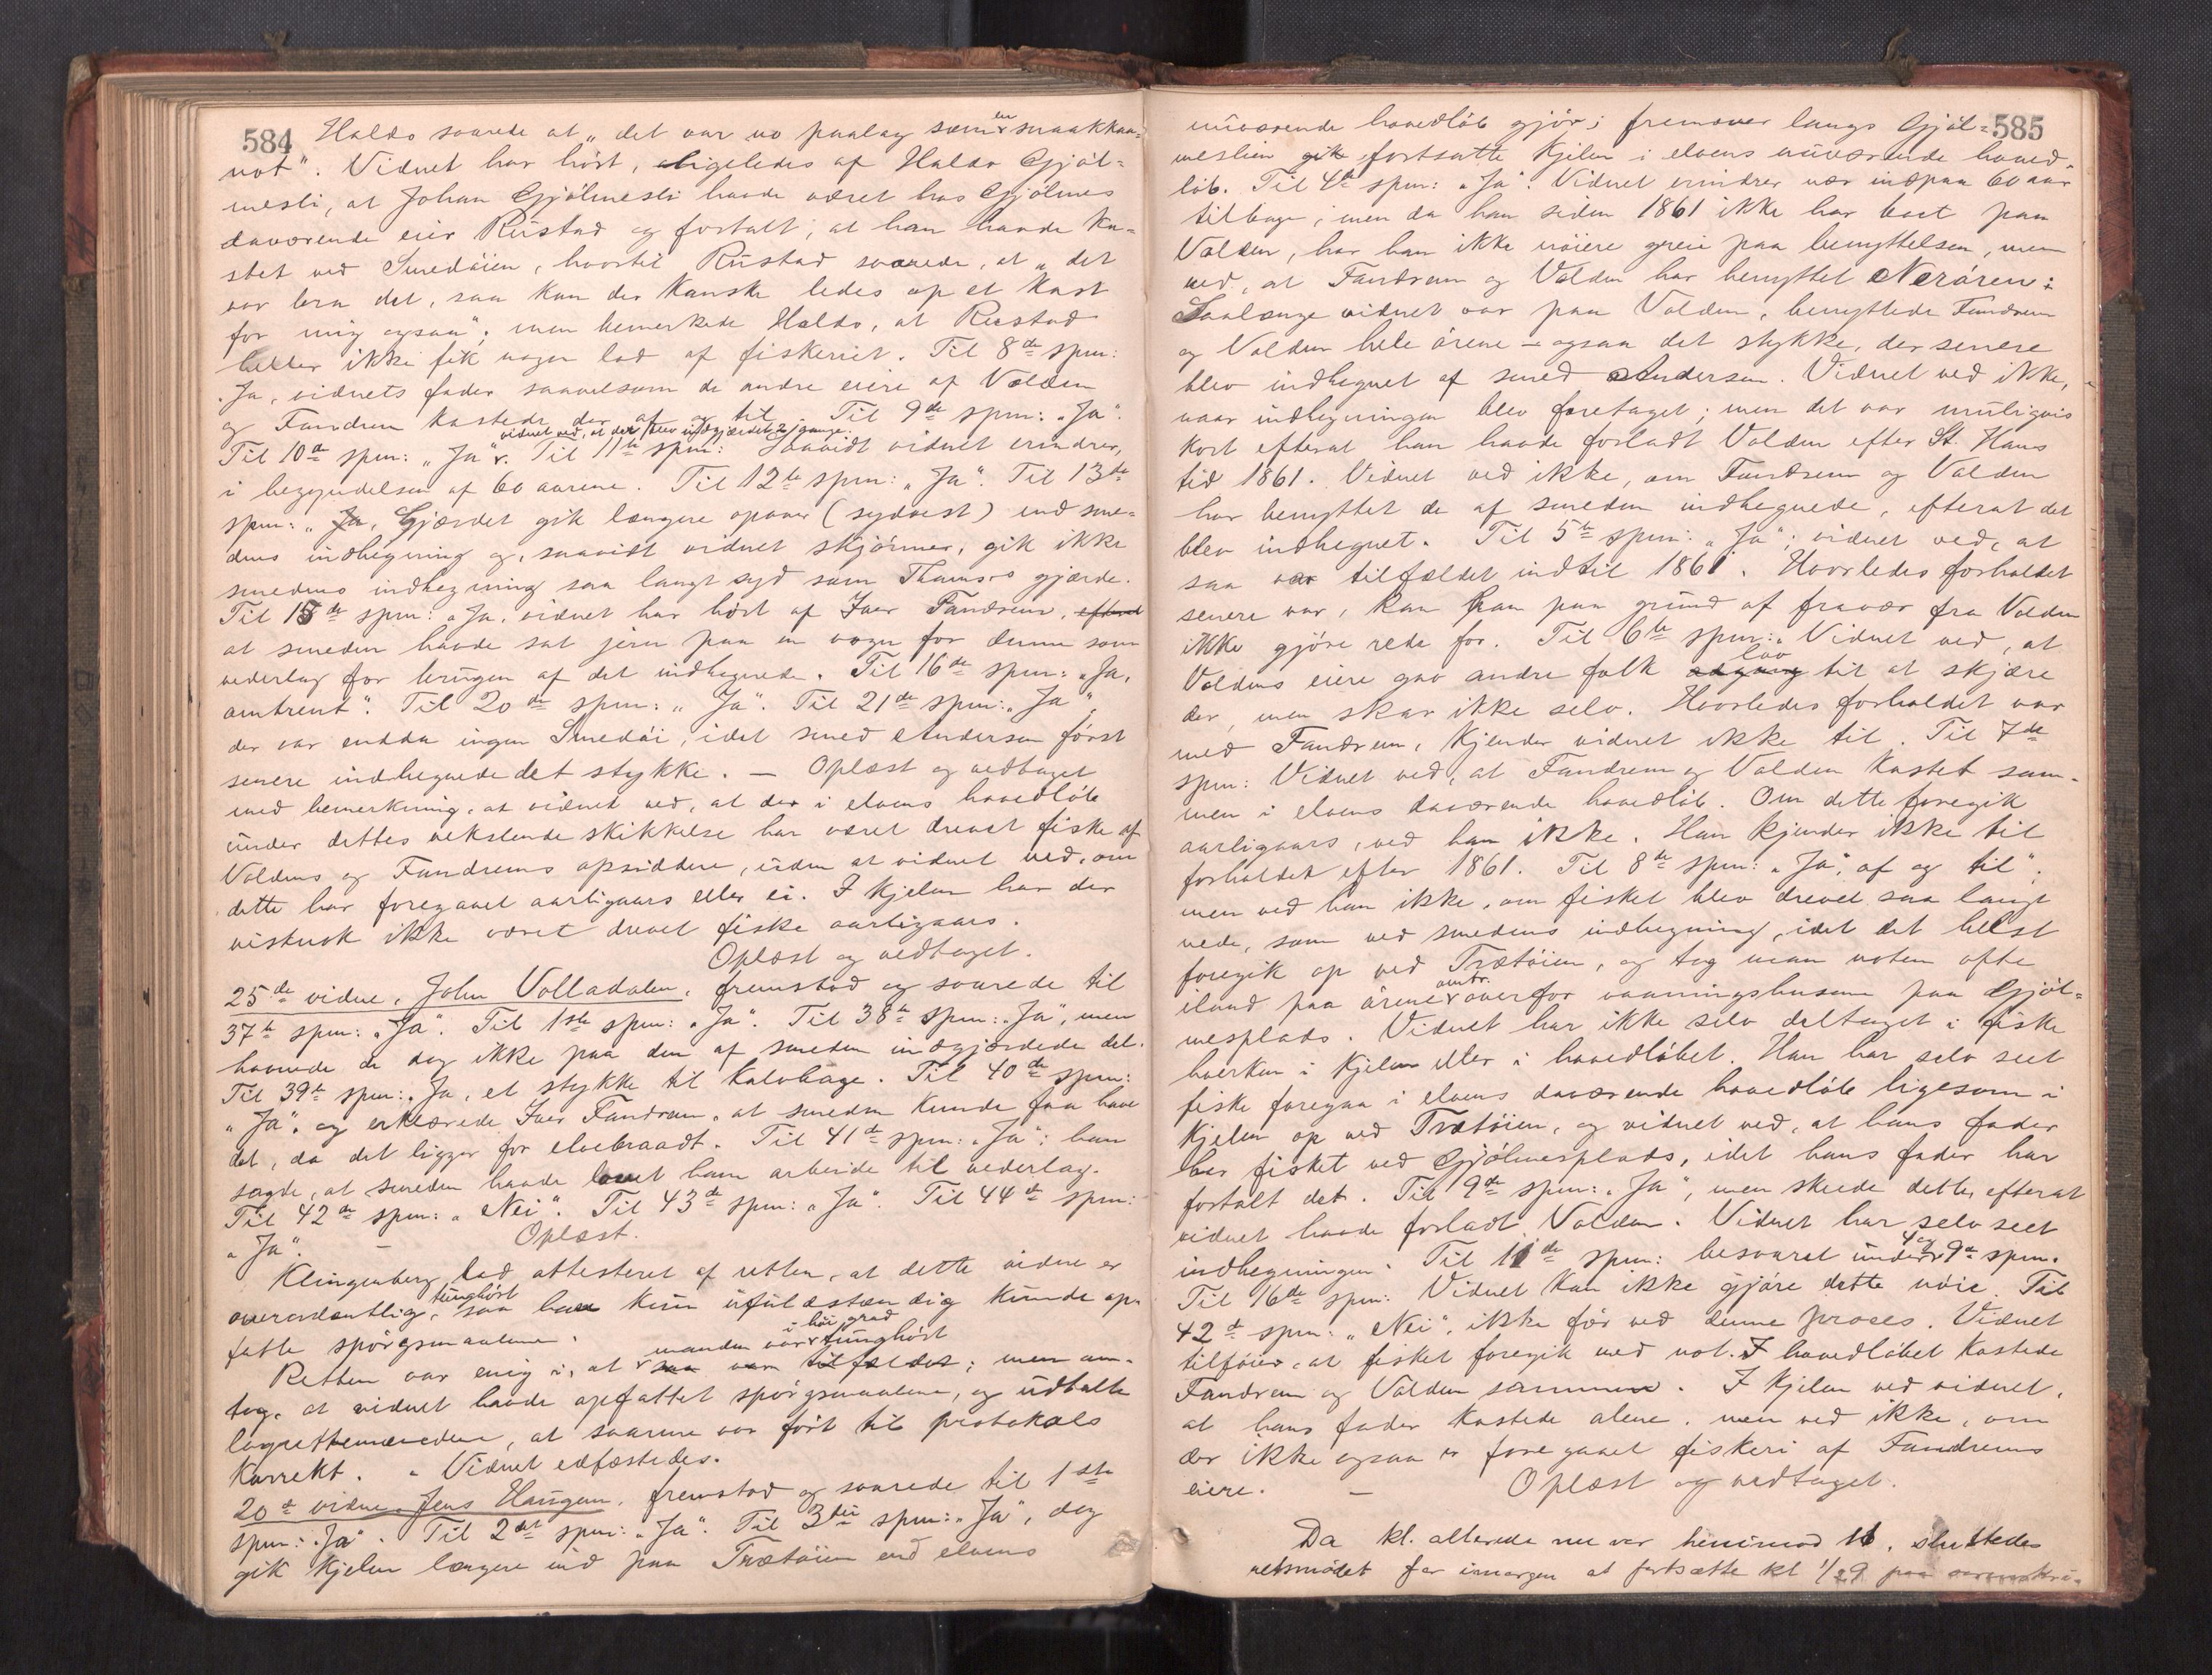 584
Haldo svarede at „det var no paalag som en smaakkaa=
not". Vidnet har hört, ligeledes af Haldo Gjöl=
mesli, at Johan Gjölmesli havde været hos Gjölmes
daværende eier Rustad og fortalt, at han havde ka=
stet ved Smedöien, hvortil Rustad svarede, at „det
var bra det, saa kan der kanske ledes op et kast
for mig ogsaa"; men bemerkede Haldo, at Rustad
heller ikke fik nogen lod af fiskeriet. Til 8de spm:
„Ja, vidnets fader saavelsom de andre eiere af Volden
og Fandrem kastede der af og til". Til 9de spm: „Ja".
Til 10de spm: „Ja", vidnet ved, at der blev indgjærdet 2 gange. Til 11te spm: Saavidt vidnet erindrer,
i begyndelsen af 60 aarene. Til 12te spm: „Ja". Til 13de
spm: „Ja, Gjærdet gik længere opover (sydvest) end sme=
dens indhegning og, saavidt vidnet skjönner, gik ikke
smedens indhegning saa langt syd som Thams's gjærde.
Til 15de spm: „Ja, vidnet har hört af Iver Fandrem, efterat
at smeden havde sat jern paa en vogn for denne som
vederlag for brugen af det indhegnede. Til 16de spm: „Ja,
omtrent". Til 20de spm: „Ja". Til 21de spm: „Ja",
der var endda ingen Smedöi, idet smed Anderson först
senere indhegnede det stykke. — Oplæst og vedtaget
med bemerkning, at vidnet ved, at der i elvens hovedlöb
under dettes vekslende skikkelse har været drevet fiske af
Voldens og Fandrems opsiddere, uden at vidnet ved, om
dette har foregaaet aarligaars eller ei. I kjelen har der
vistnok ikke været drevet fiske aarligaars.
Oplæst og vedtaget.
25de vidne, John Volladalen, fremstod og svarede til
37te spm: „Ja". Til 1ste spm: „Ja". Til 38te spm: „Ja", men
havnede de dog ikke paa den af smeden indgjærdede del.
Til 39te spm: „Ja, et stykke til kalvhage. Til 40de spm:
„Ja", og erklærede Iver Fandrem, at smeden kunde faa have
det, da det ligger for elvebraadt. Til 41de spm: „Ja"; han
sagde, at smeden havde lovet ham arbeide til vederlag.
Til 42de spm: „Nei". Til 43de spm: „Ja". Til 44de spm:
„Ja". — Oplæst.
Klingenberg bad attesteret af retten, at dette vidne er
overordentlig tunghört, saa han kun ufuldstændig kunde op=
fatte spörgsmaalene.
Retten var enig i, at manden var i höi grad tunghört saa var tilfældet; men an=
tog, at vidnet havde opfattet spörgsmaalene, og udtalte
lagrettemændene, at svarene var fört til protokols
korrekt. — Vidnet edfæstedes.
20de vidne, Jens Haugen, fremstod og svarede til 1ste
spm: „Ja". Til 2det spm: „Ja". Til 3die spm: „Ja", dog
gik kjelen længere ind paa Trætöien end elvens
585
nuværende hovedlöb gjör; fremover langs Gjöl=
meslien gik fortsatte kjelen i elvens nuværende hoved=
löb. Til 4de spm: „Ja". Vidnet erindrer nær indpaa 60 aar
tilbage; men da han siden 1861 ikke har boet paa
Volden, har han ikke nöiere greie paa benyttelsen, men
ved, at Fandrem og Volden har benyttet Nerören:
Saalænge vidnet var paa Volden, benyttede Fandrem
og Volden hele örene — ogsaa det stykke, der senere
blev indhegnet af smed Anderson. Vidnet ved ikke,
naar indhegningen blev foretaget; men det var muligvis
kort efterat han havde forladt Volden efter St. Hans
tid 1861. Vidnet ved ikke, om Fandrem og Volden
har benyttet de af smeden indhegnede, efterat det
blev indhegnet. Til 5te spm: „Ja"; vidnet ved, at
saa var tilfældet indtil 1861. Hvorledes forholdet
senere var, kan han paa grund af fravær fra Volden
ikke gjöre rede for. Til 6te spm: „Vidnet ved, at
Voldens eiere gav andre folk adgang lov til at skjære
der, men skar ikke selv. Hvorledes forholdet var
med Fandrem, kjender vidnet ikke til. Til 7de
spm: Vidnet ved, at Fandrem og Volden kastet sam=
men i elvens daværende hovedlöb. Om dette foregik
aarligaars, ved han ikke. Han kjender ikke til
forholdet efter 1861. Til 8de spm: „Ja", af og til";
men ved han ikke, om fisket blev drevet saa langt
nede, som ved smedens indhegning, idet det helst
foregik op ved Trætöien, og tog man noten ofte
iland paa örene omtr. overfor vaaningshusene paa Gjöl=
mesplads. Vidnet har ikke selv deltaget i fiske
hverken i kjelen eller i hovedlöbet. Han har selv seet
fiske foregaa i elvens daværende hovedlöb ligesom i
kjelen op ved Trætöien, og vidnet ved, at hans fader
har fisket ved Gjölmesplads, idet hans fader har
fortalt det. Til 9de spm: „Ja", men skede dette, efterat
vidnet havde forladt Volden. Vidnet har selv seet
indhegningen. Til 11te spm: besvaret under 4 og 9de spm.
Til 16de spm: Vidnet kan ikke gjöre dette nöie. Til
42de spm: „Nei", ikke för ved denne proces. Vidnet
tilföier, at fisket foregik med not. I hovedlöbet kastede
Fandrem og Volden sammen. I kjelen ved vidnet,
at hans fader kastede alene, men ved ikke, om
der ikke ogsaa er foregaaet fiskeri af Fandrems
eiere. — Oplæst og vedtaget.
Da kl. allerede nu var henimod 11, sluttedes
retsmödet for imorgen at fortsætte kl ½9 paa